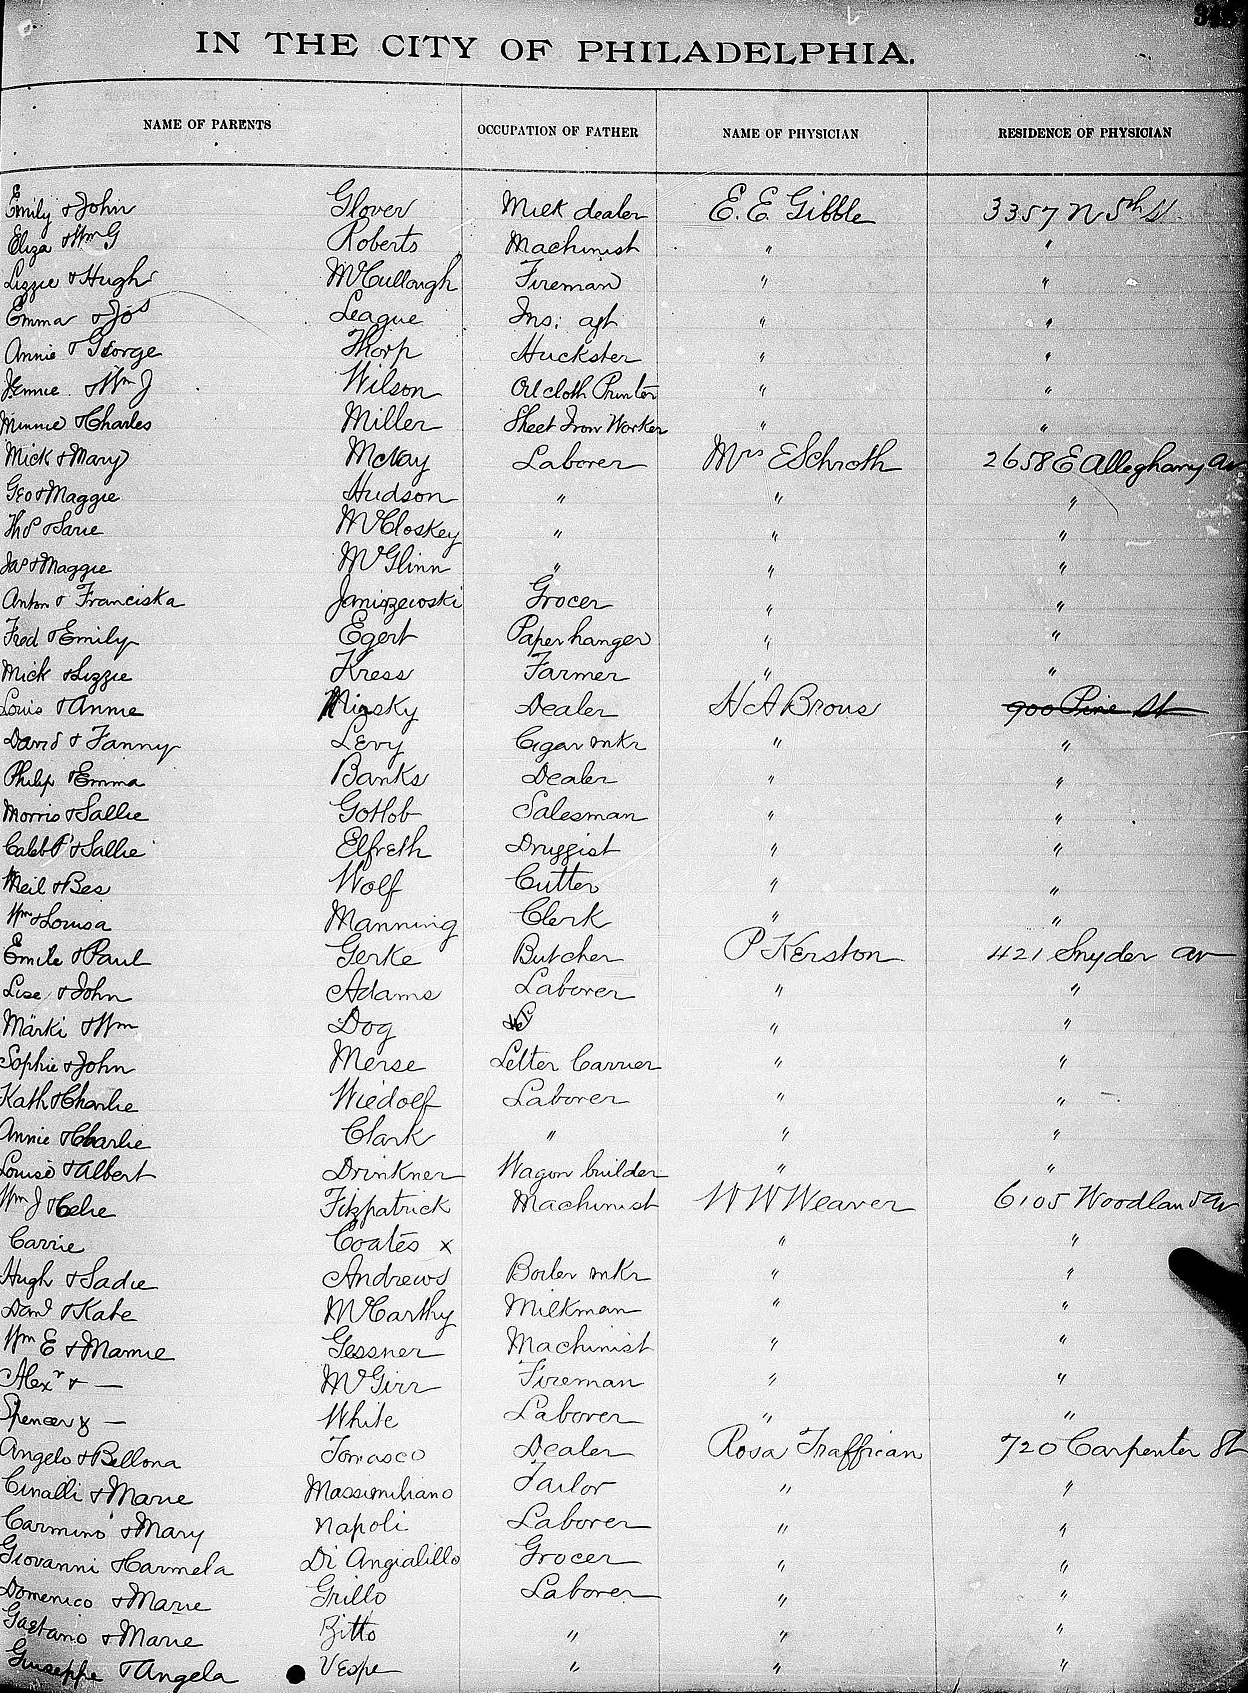 IN THE CITY OF PHILADELPHIA.
NAME OF PARENTS OCCUPATION OF FATHER NAME OF PHYSICIAN RESIDENCE OF PHYSICIAN
Emily & John Glover Milk dealer E. E. Gibble 3357 N 5th St.
Eliza & Wm G Roberts Machinist " "
Lizzie & Hugh McCullough Fireman " "
Emma & Jos League Ins. agt " "
Annie & George Thorp Huckster " "
Jennie & Wm J Wilson Oil cloth Printer " "
Minnie & Charles Miller Sheet Iron Worker " "
Mick & Mary McVay Laborer Mrs E Schroth 2658 E Alleghany av
Geo & Maggie Hudson " " "
Thos & Sarie McCloskey " " "
Jas & Maggie McGlinn " " "
Anton & Franciska Janiszewski Grocer " "
Fred & Emily Egert Paper hanger " "
Mick & Lizzie Kress Farmer " "
Louis & Annie Dealer H A Brous 900 Pine St
David & Fanny Levy Cigar mkr " "
Philip & Emma Banks Dealer " "
Morris & Sallie Gotlob Salesman " "
Caleb P & Sallie Elfreth Druggist " "
Meil & Bes Wolf Cutter " "
Wm & Louisa Manning Clerk " "
Emile & Paul Gerke Butcher P Kerston 421 Snyder av
Lise & John Adams Laborer " "
Märki & Wm Dog " "
Sophie & John Merse Letter Carrier " "
Kath & Charlie Wiedolf Laborer " "
Annie & Charlie Clark " " "
Louise & Albert Drinkner Wagon builder " "
Wm J & Celie Fitzpatrick Machinist W W Weaver 6105 Woodland av
Carrie Coates x " "
Hugh & Sadie Andrews Boiler mkr " "
Danl & Kate McCarthy Milkman " "
Wm E & Mamie Gessner Machinist " "
Alexr & — McGirr Fireman " "
Spencer & — White Laborer " "
Angelo & Bellona Tomasco Dealer Rosa Traffican 720 Carpenter St
Cinalli & Marie Massimiliano Tailor " "
Carmino & Mary Napoli Laborer " "
Giovanni & Carmela Di Angialillo Grocer " "
Domenico & Marie Grillo Laborer " "
Gaetano & Marie Zitto " " "
Giuseppe & Angela Vespe " " "